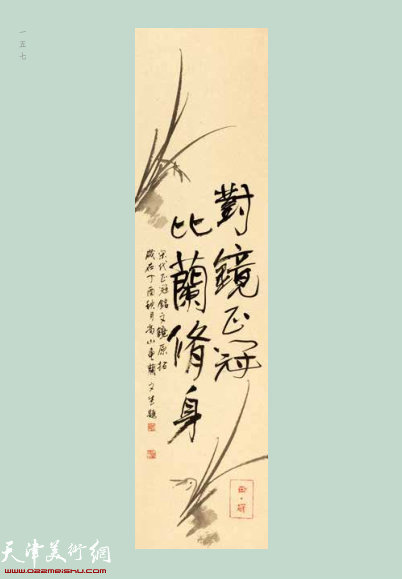 一五七
對鏡正冠
比蘭脩身
宋代正冠銘文鏡原拓
歲在丁酉秋月高山
天津美術網
www.022meishu.com